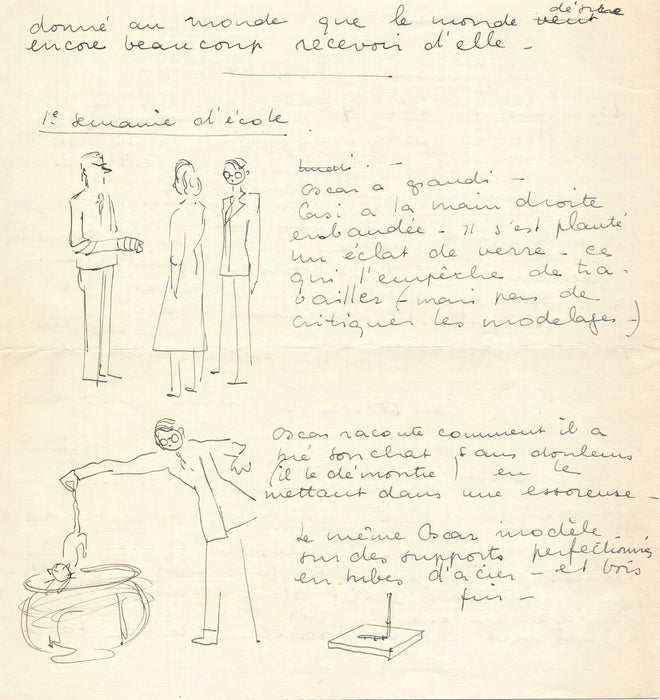 donné au monde que le monde désire
encore beaucoup recevoir d'elle -
1e semaine d'école
lundi. -
Oscar a grandi -
Casi a la main droite
embandée - Il s'est planté
un éclat de verre - ce
qui l'empêche de tra-
vailler (mais pas de
critiquer les modelages -)
Oscar raconte comment il a
tué son chat sans douleurs
(il le démontre) en le
mettant dans une essoreuse -
Le même Oscar modèle
sur des supports perfectionnés
en tubes d'acier - et bois
fin -